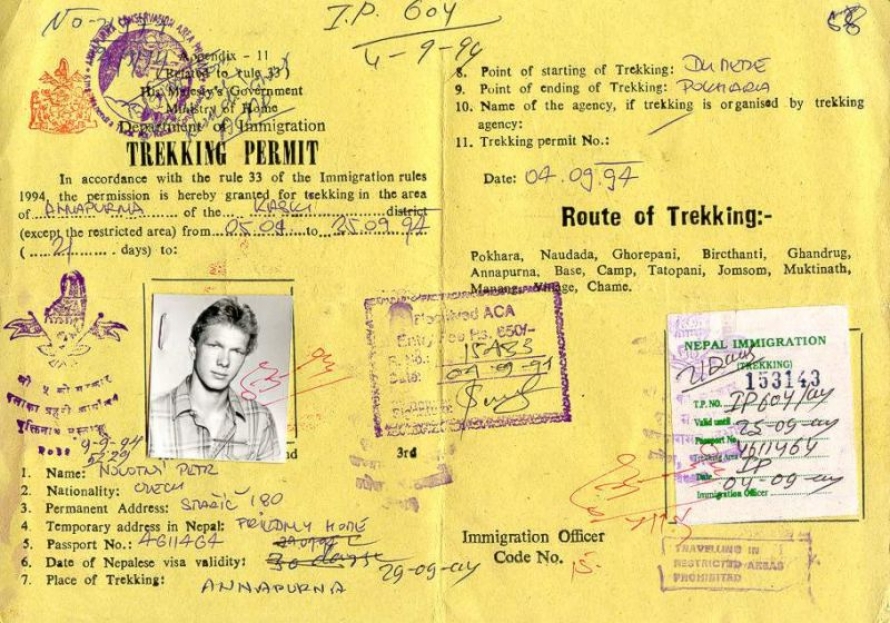 I.P. 604
4-9-94
Appendix - 11
(Related to rule 33)
His Majesty's Government
Ministry of Home
Department of Immigration
TREKKING PERMIT
In accordance with the rule 33 of the Immigration rules
1994, the permission is hereby granted for trekking in the area
of ANNAPURNA of the KASKI district
(except the restricted area) from 05.09 to 25.09 94
( 21 days) to:
9-9-94
1. Name: NOVOTNÝ PETR
2. Nationality: CZECH
3. Permanent Address: 180
4. Temporary address in Nepal: FRIENDLY HOME
5. Passport No.:
6. Date of Nepalese visa validity: 29-09-94
7. Place of Trekking: ANNAPURNA
8. Point of starting of Trekking: DUMRE
9. Point of ending of Trekking: POKHARA
10. Name of the agency, if trekking is organised by trekking
agency:
11. Trekking permit No.:
Date: 04.09.94
Route of Trekking:-
Pokhara, Naudada, Ghorepani, Bircthanti, Ghandrug,
Annapurna, Base, Camp, Tatopani, Jomsom, Muktinath,
Manang, Village, Chame.
Received ACA
Entry Fee Rs. 650/-
R. No.:
Date: 04.9.94
Signature
3rd
NEPAL IMMIGRATION
(TREKKING)
153143
T.P. NO. IP604/
Valid until 25-09-
Passport No.
Trekking Area IP
Date 04-09-
Immigration Officer
Immigration Officer
Code No. 15.
TRAVELLING IN
RESTRICTED AREAS
PROHIBITED